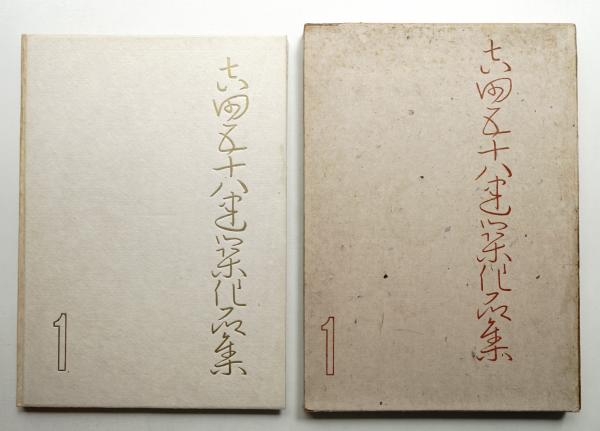 吉田五十八建築作品集
1
吉田五十八建築作品集
1